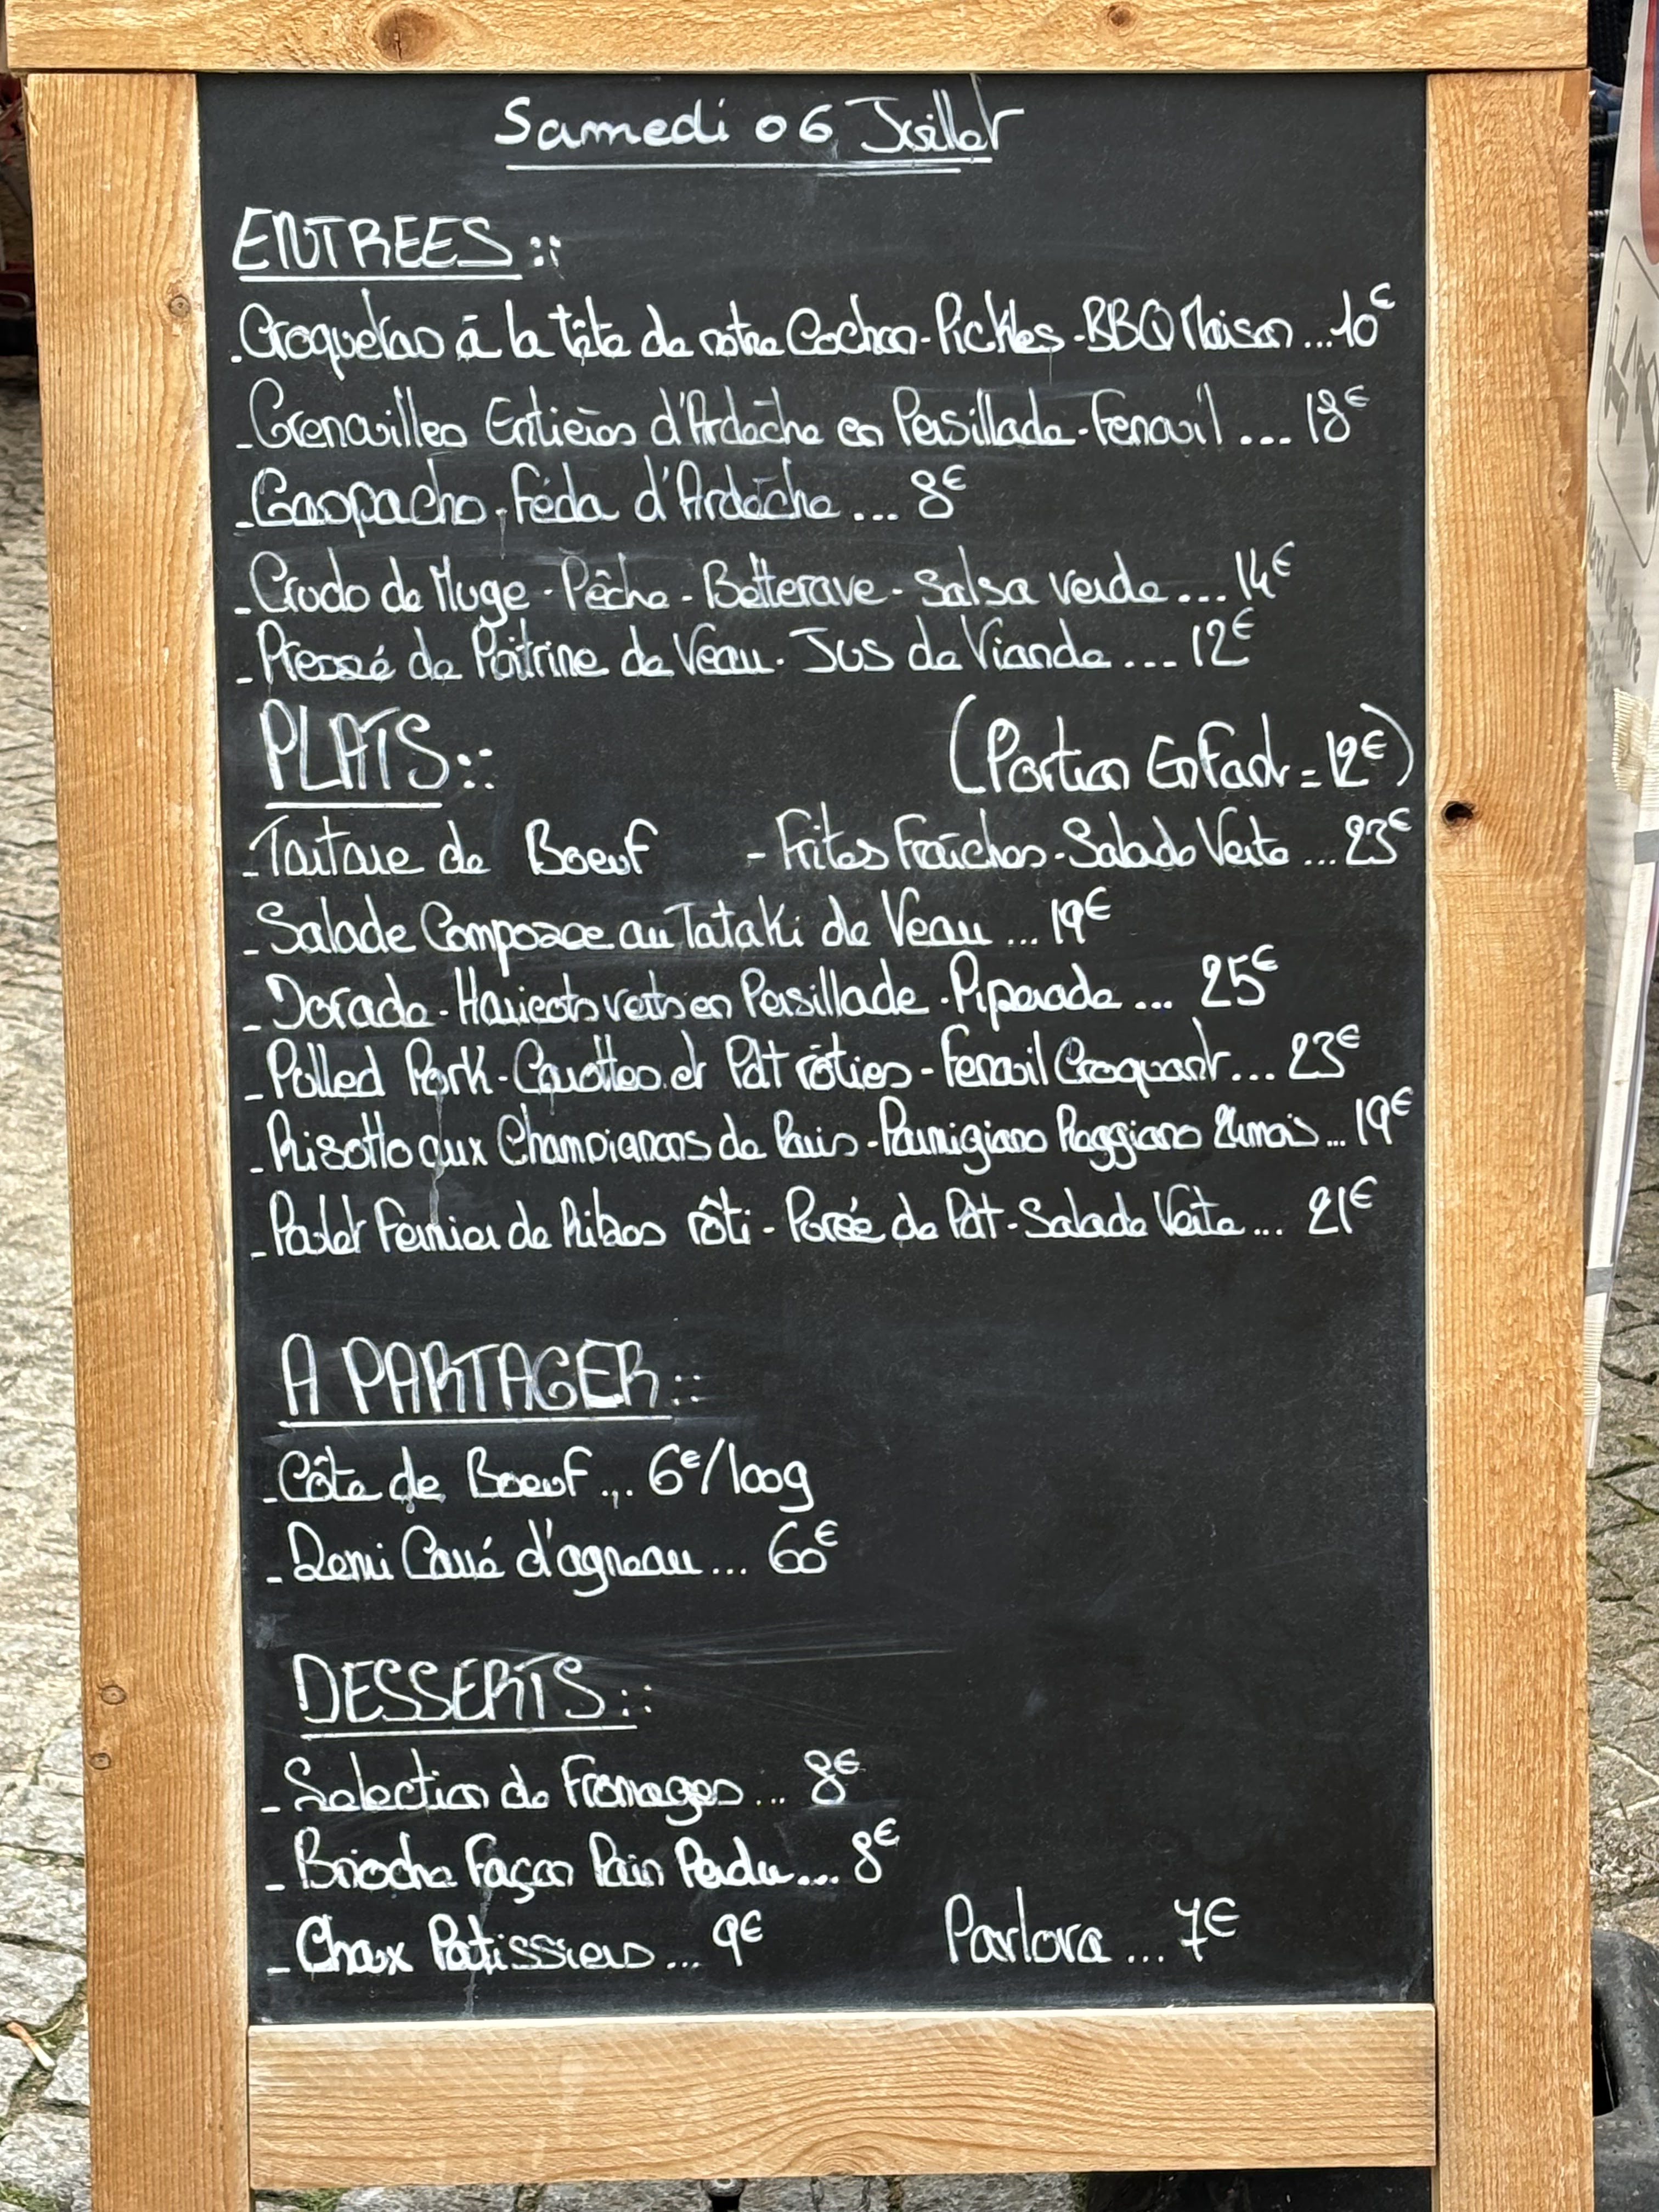 Samedi 06 Juillet
ENTREES ::
- Croquetas à la tête de notre Cochon - Pickles - BBQ Maison ... 10€
- Grenouilles Entières d'Ardèche en Persillade - Fenouil ... 18€
- Gaspacho, Féda d'Ardèche ... 8€
- Crudo de Muge - Pêche - Betterave - Salsa verde ... 14€
- Pressé de Poitrine de Veau - Jus de Viande ... 12€
PLATS :: (Portion Enfant = 12€)
- Tartare de Boeuf - Frites Fraîches - Salade Verte ... 23€
- Salade Composée au Tataki de Veau ... 19€
- Dorade - Haricots verts en Persillade - Piperade ... 25€
- Pulled Pork - Carottes et Pdt rôties - Fenouil Croquant ... 23€
- Risotto aux Champignons de Paris - Parmigiano Reggiano 24mois ... 19€
- Poulet Fermier de Ribes rôti - Purée de Pdt - Salade Verte ... 21€
A PARTAGER ::
- Côte de Boeuf ... 6€/100g
- Demi Carré d'agneau ... 60€
DESSERTS ::
- Selection de Fromages ... 8€
- Brioche Façon Pain Perdu ... 8€
- Choux Patissiers ... 9€ Pavlova ... 7€